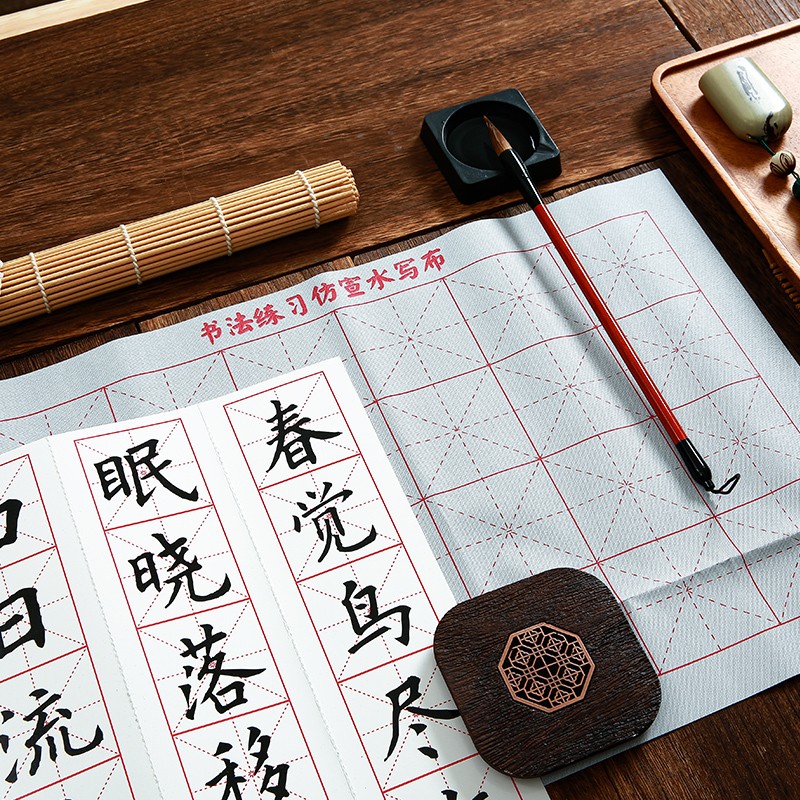 书法练习仿宣水写布
春觉鸟尽
眠晓落移
日流